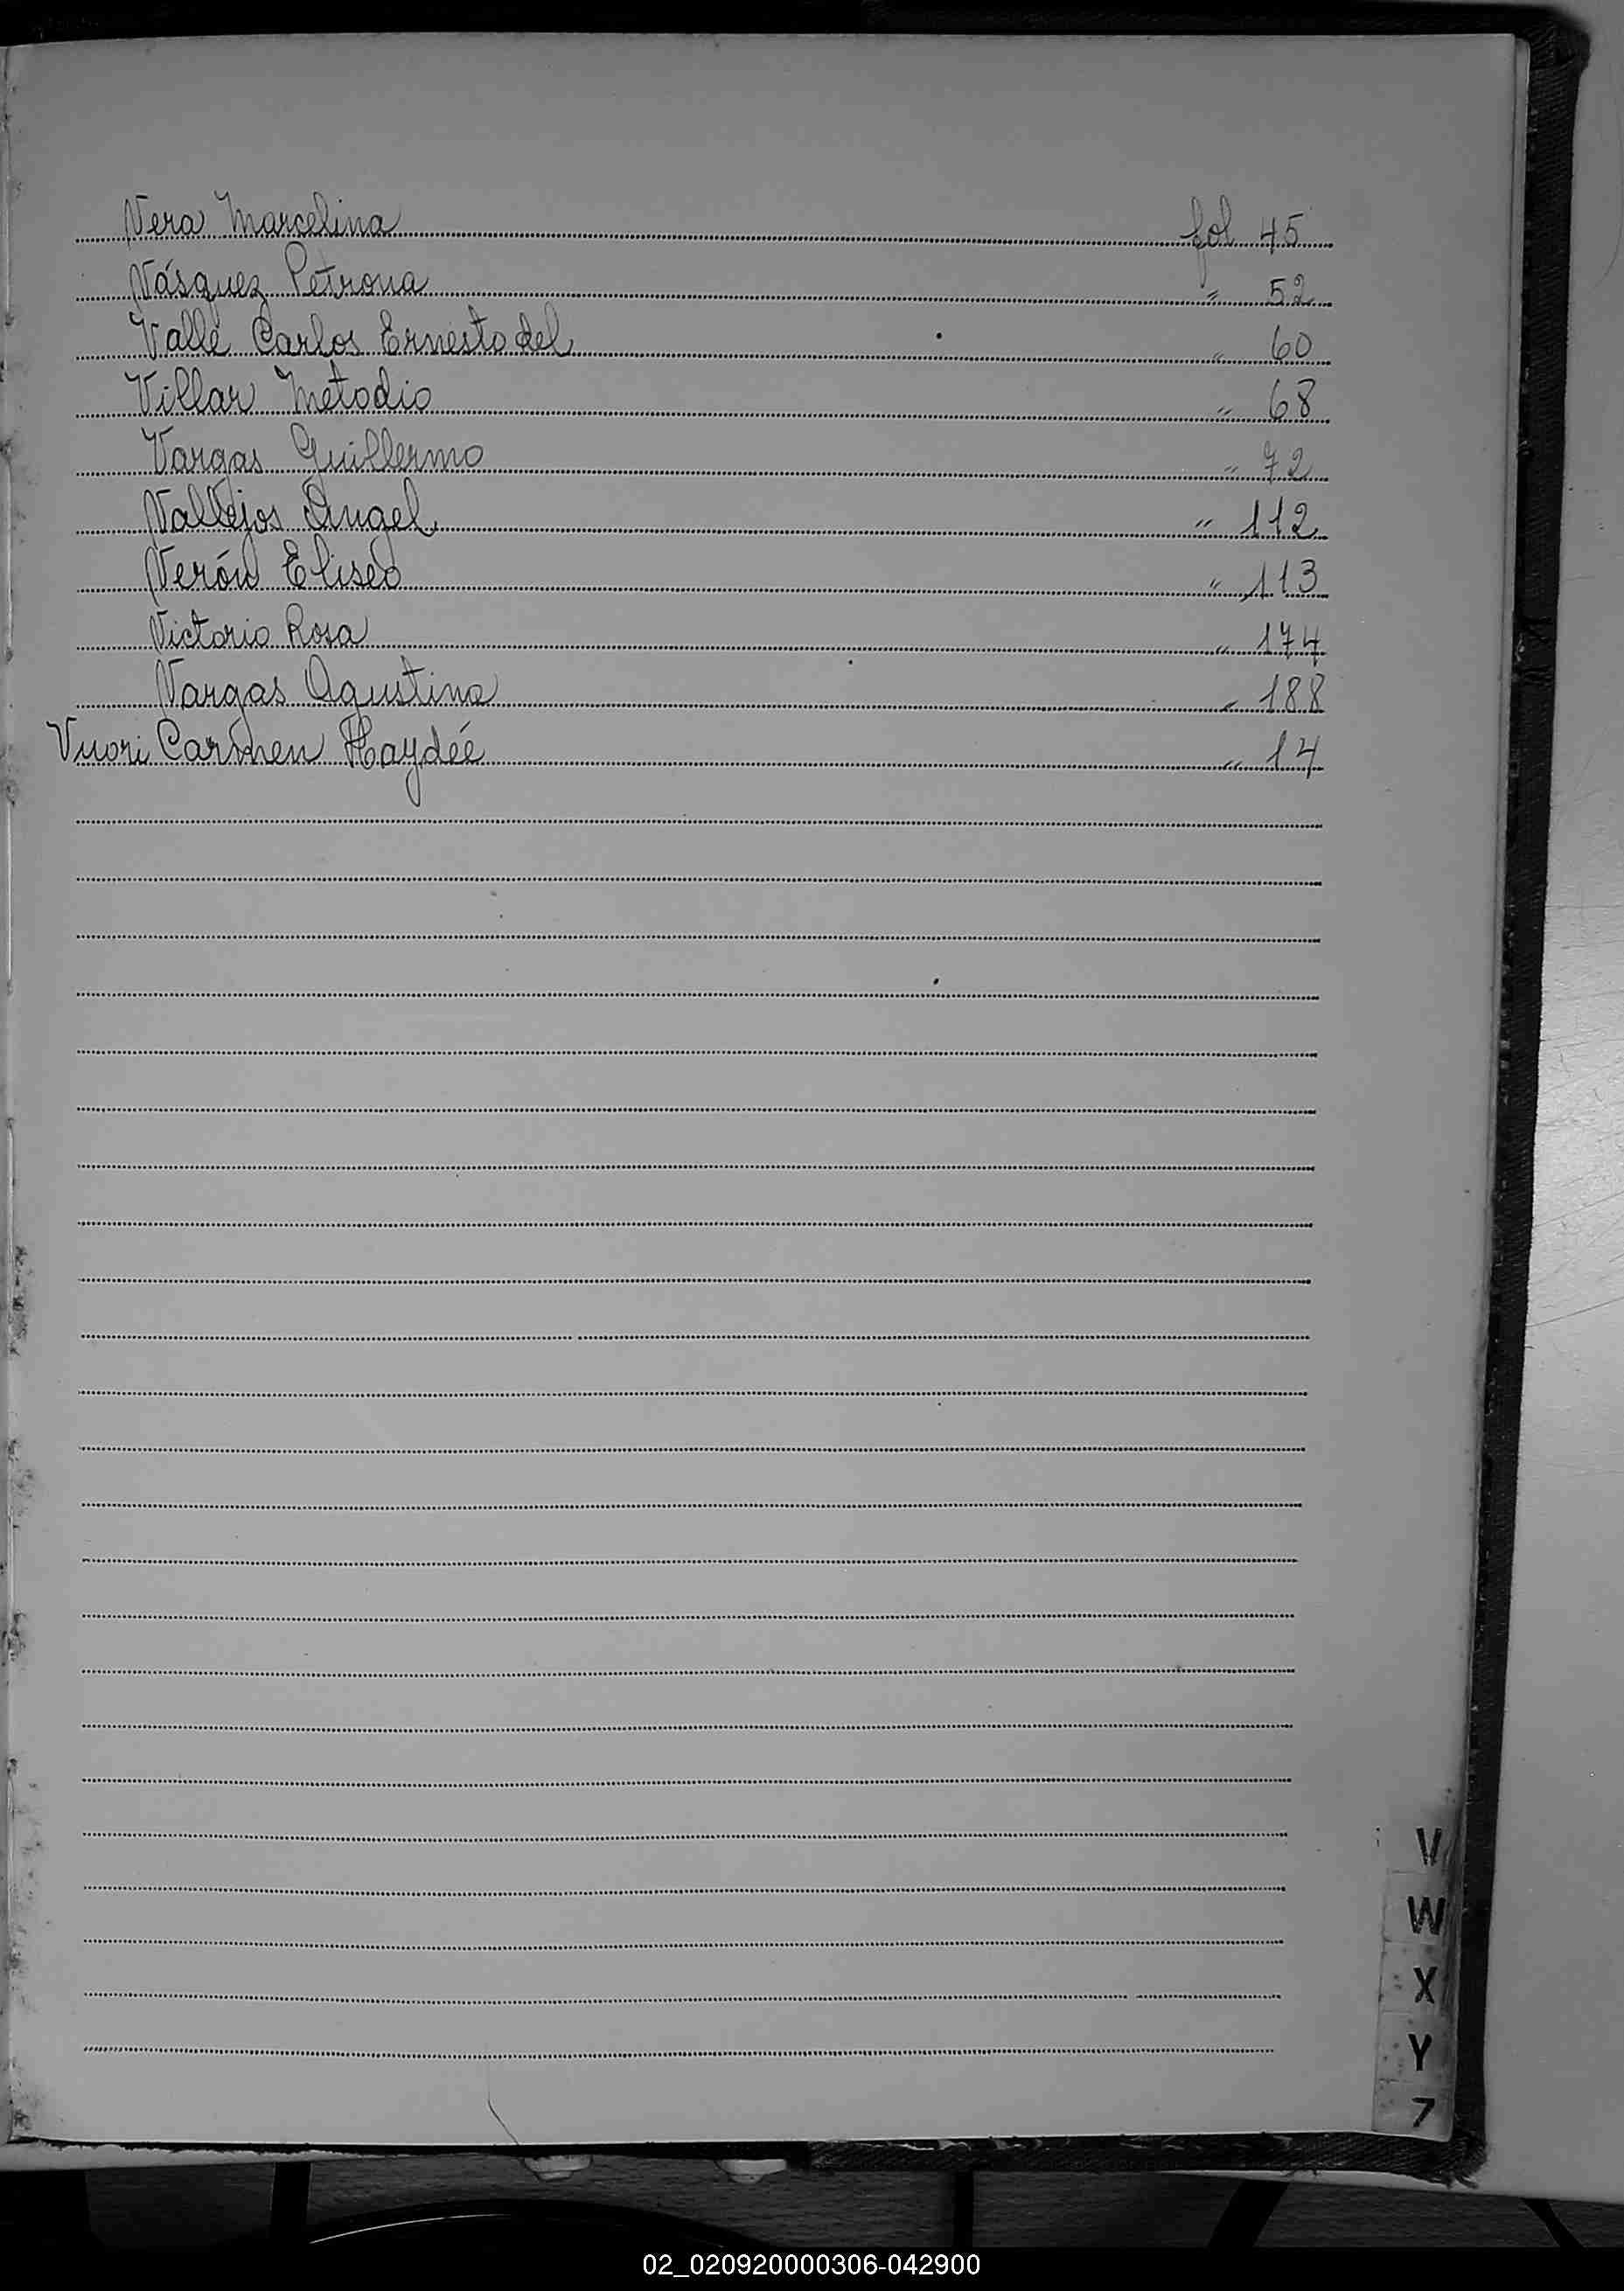 Vera Marcelina fol 45
Vásquez Petrona " 52
Valle Carlos Ernesto del " 60
Villar Metodio " 68
Vargas Guillermo " 72
Vallejos Angel " 112
Verón Eliseo " 113
Victorio Rosa " 174
Vargas Agustina " 188
Vuori Carmen Haydée " 14
V
W
X
Y
Z
02_020920000306-042900